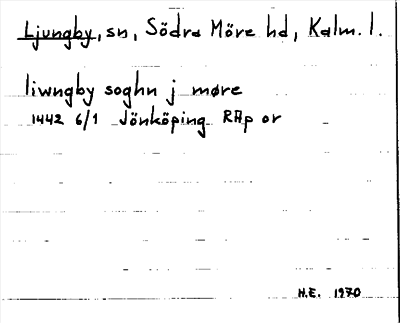 Ljungby, sn, Södra Möre hd, Kalm. l.
liwngby soghn j møre
1442 6/1 Jönköping RAp or
H.E. 1970